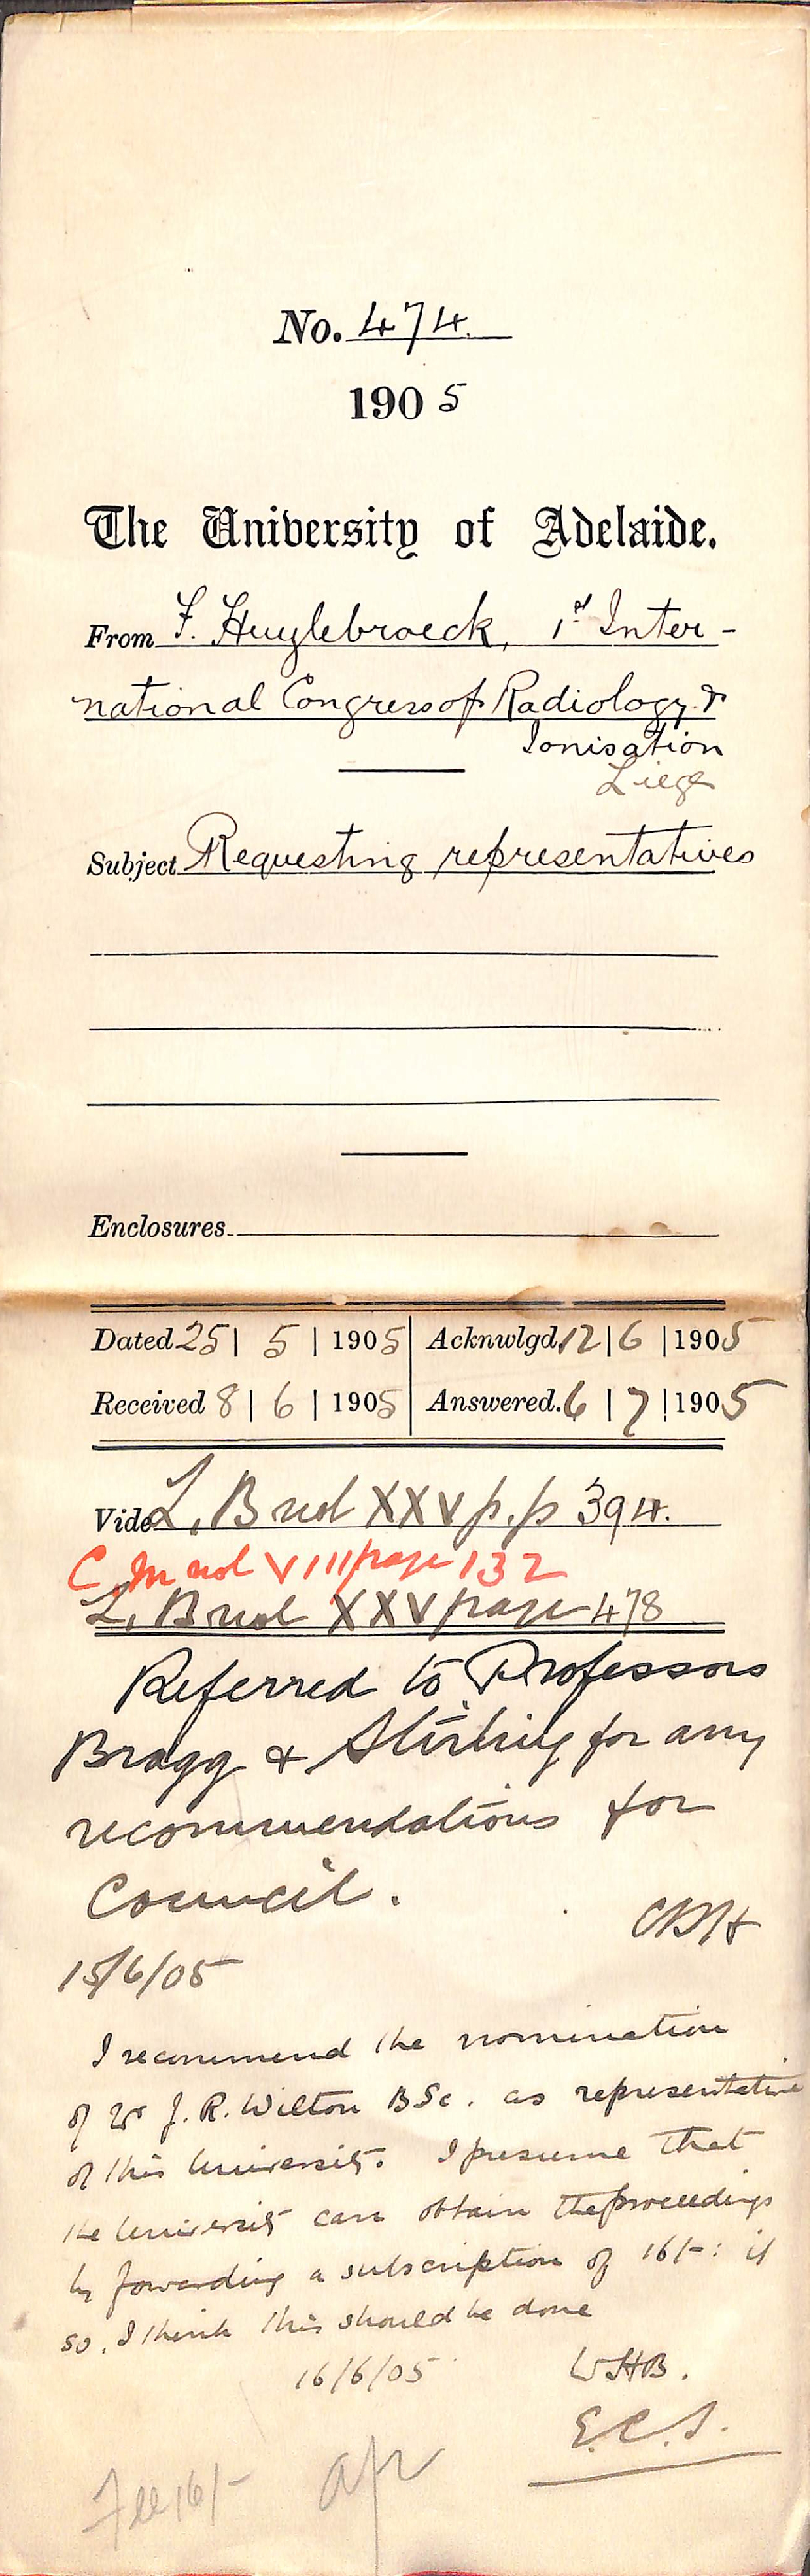 No. 474.
1905
The University of Adelaide.
From F. Huylebroeck, 1st Inter-
national Congress of Radiology &
Ionisation
Liege
Subject Requesting representatives
Enclosures
Dated 25 | 5 | 1905 | Acknwlgd. 12 | 6 | 1905
Received 8 | 6 | 1905 | Answered. 6 | 7 | 1905
Vide L. B vol XXV p.p 394.
C. M vol VIII page 132
L. B vol XXV page 478
Referred to Professors
Bragg & Stirling for any
recommendations for
Council.
15/6/05
I recommend the nomination
of Mr J. R. Wilton BSc. as representative
of this University. I presume that
the University can obtain the proceedings
by forwarding a subscription of 16/-: if
so, I think this should be done
16/6/05 WHB.
E.C.S.
Fee 16/-